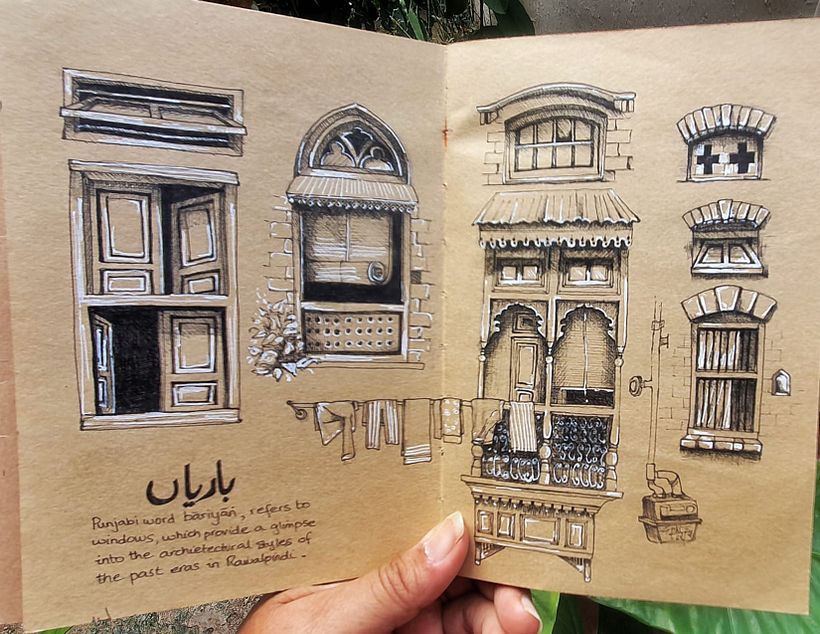 باریاں
Punjabi word bāriyāñ, refers to
windows, which provide a glimpse
into the archietectural styles of
the past eras in Rawalpindi.